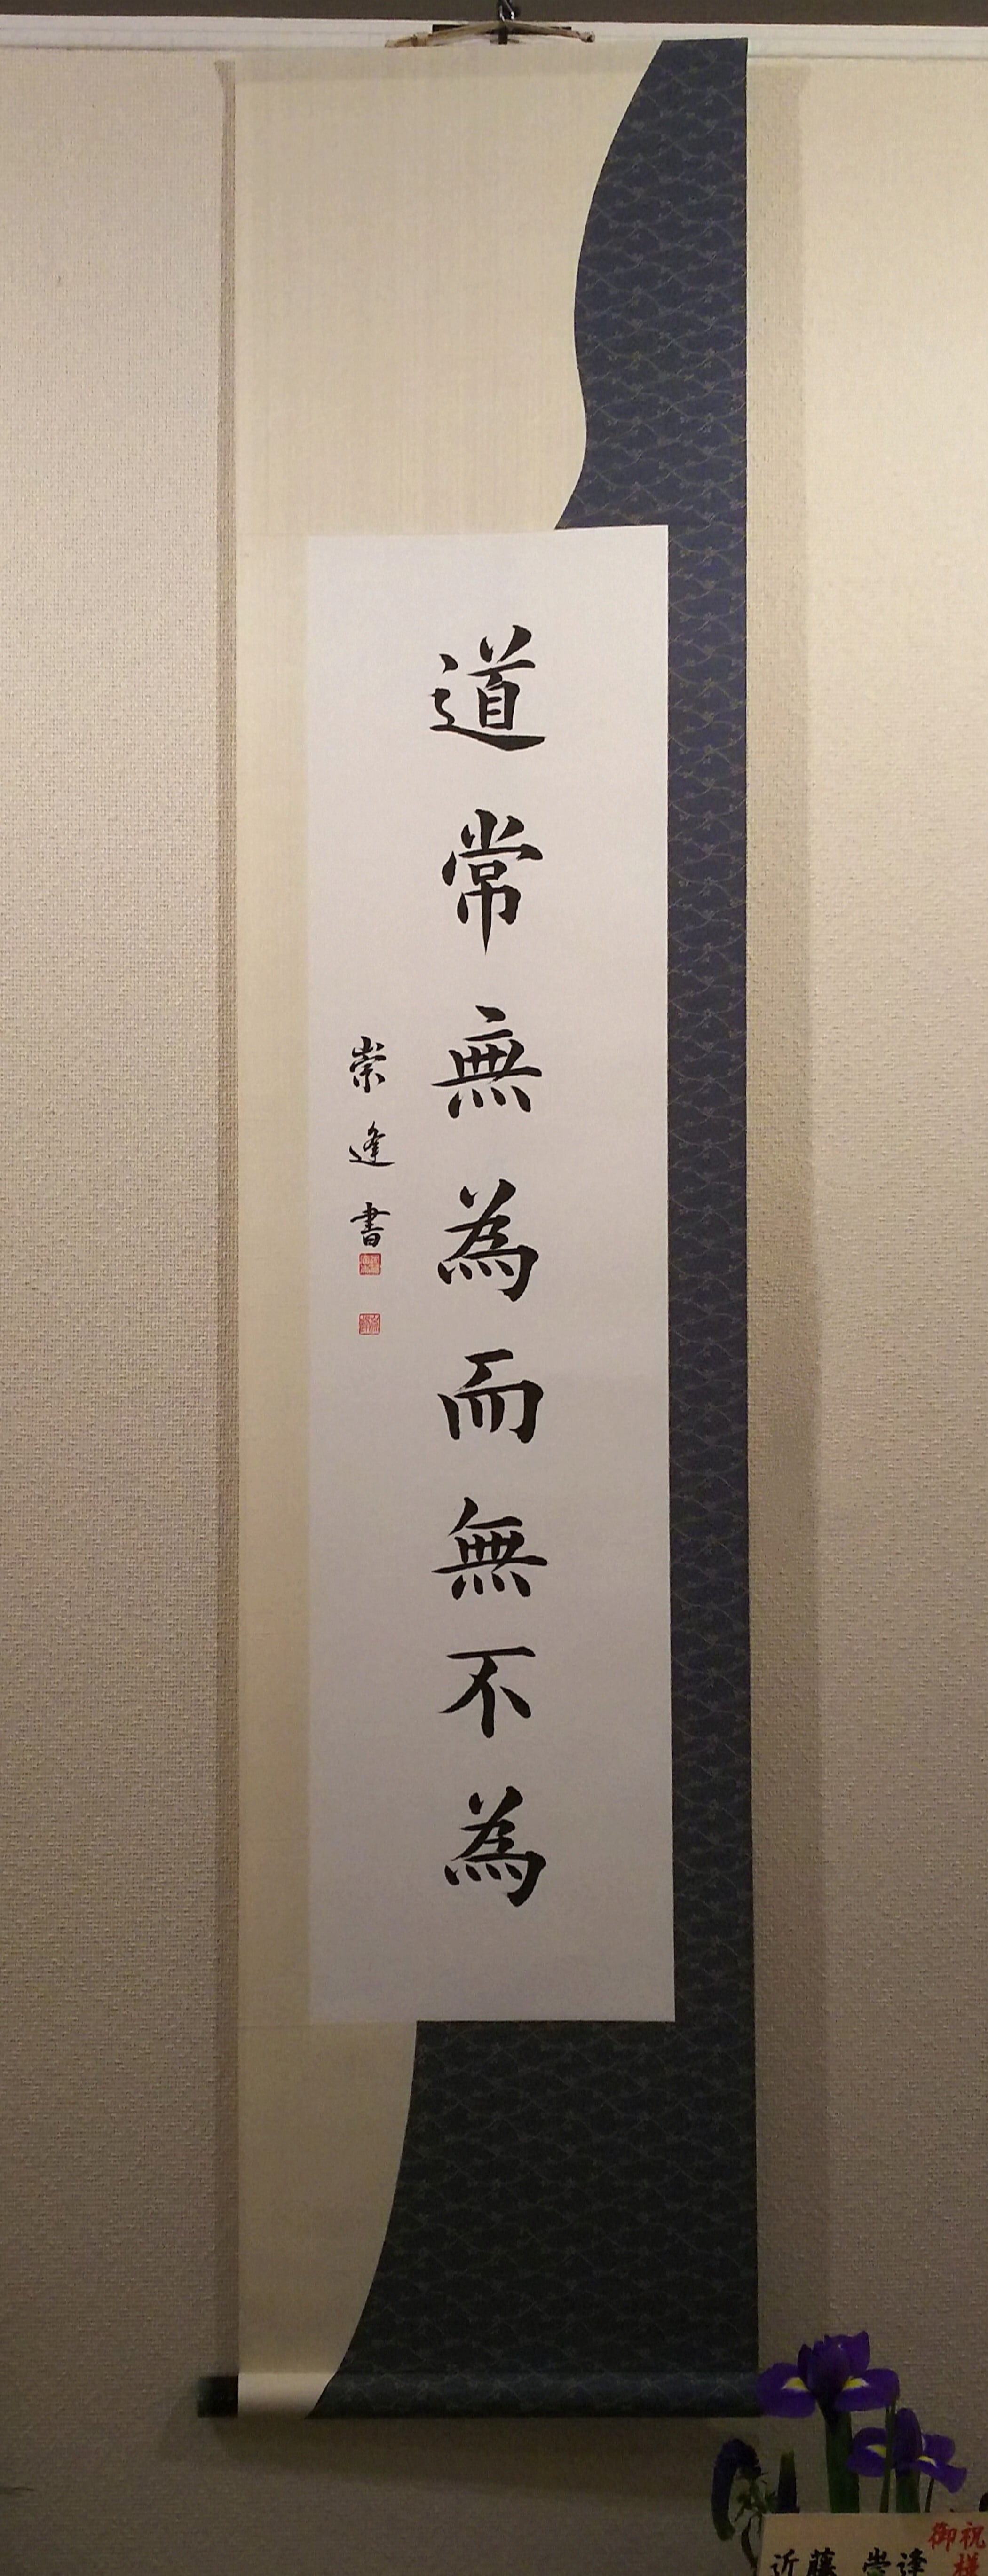 道常無為而無不為
崇逢書
御祝
近藤崇逢様